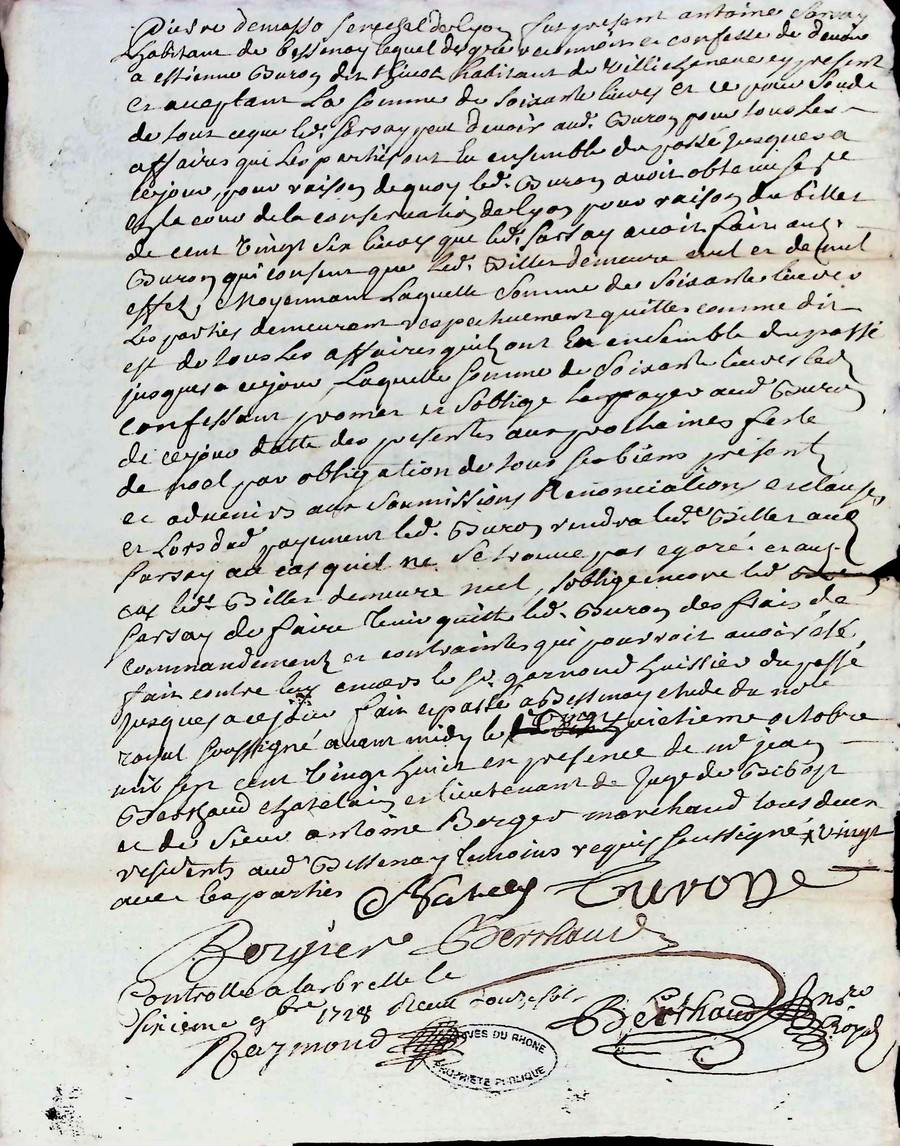 Pierre demasso senechal de Lyon fut present antoine Sarsay
habitant de bessenay lequel de gré reconnoit et confesse de devoir
a estienne Buron dit habitant de Villecheneve cy present
et acceptant La somme de soixante livres et ce pour solde
de tout ce que led. sarsay peut devoir aud. Buron pour tous Les
affaires que Les parties ont Eu ensemble du passé Jusques a
ce jour, pour raison de quoy led. Buron avoit obtenu
la cour de la conservation de Lyon pour raison du billet
de cent vingt six livres que led. sarsay avoit fait aud.
Buron qui consent que led. Billet demeure nul et de nul
effet, Moyennant Laquelle somme de soixante livres
Les parties demeurent respectivement quittes comme dit
est de tous Les affaires quils ont Eu ensemble du passé
jusques a ce jour Laquelle somme de soixante livres led.
confessant promet et soblige payer aud. Buron
de ce jour datte des presentes aux prochaines feste
de noel par obligation de tous ses biens presents
et advenirs aux soumissions Renonciations et clauses
et Lors dud. payement led. Buron rendra led. Billet aud.
sarsay au cas quil ne se trouve pas egaré et aud.
cas led. Billet demeure nul, soblige encore led.
sarsay de faire tenir quitte led. Buron des frais de
commandement et contraintes qui pourroit avoir été
fait contre luy envers le sr. garnoud huissier du passé
jusques a ce jour fait et passé a Bessenay etude du note
royal soussigné avant midy le huictieme octobre
mil sept cent vingt huict en presence de me jean
Berthaud chatelain et lieutenant de Juge de Bibost
et de sieur antoine Berger marchand tous deux
residents aud. Bessenay temoins requis soussignés x vingt
avec les parties
Buronne
Bergiere Berthaud
Controllé a larbrelle le
sixieme 9bre 1728 Receu douze sols
Raymond
Berthaud nore
Royal
ARCHIVES DU RHONE
PROPRIÉTÉ PUBLIQUE